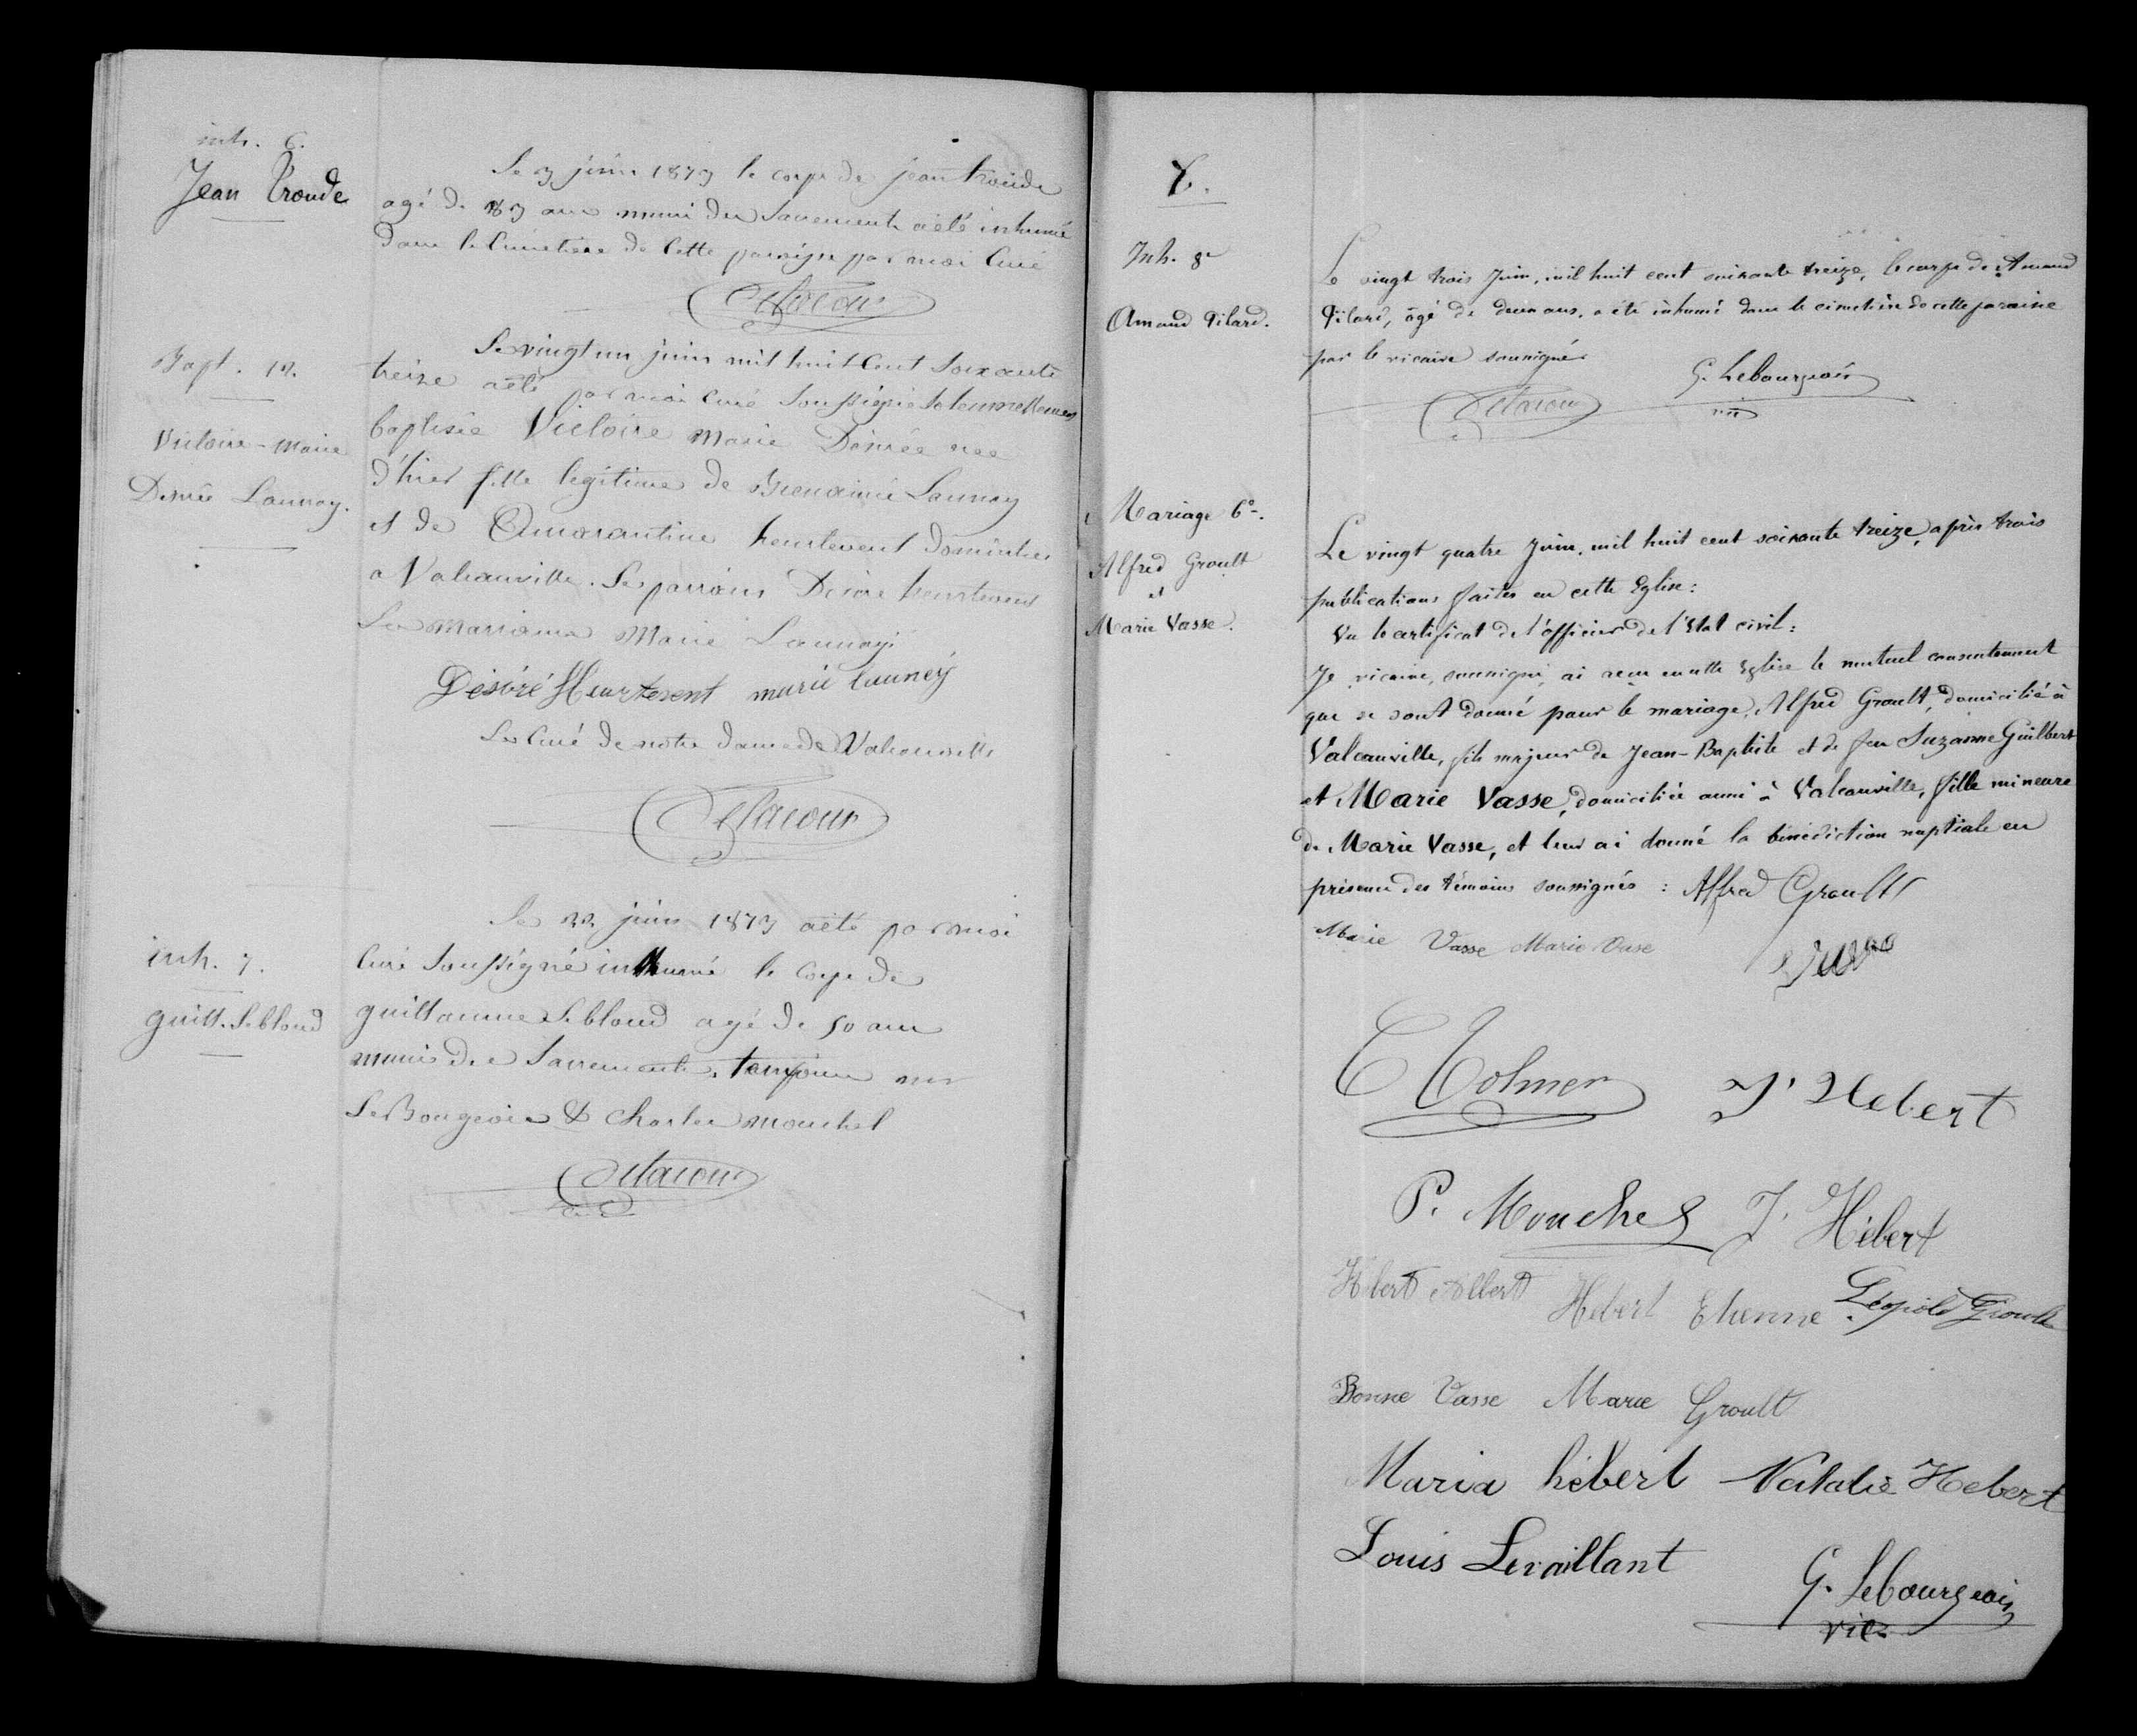 inh. 6.
Jean Troude
Le 3 juin 1873 le corps de jean troude
agé de 83 ans muni des Sacrements a été inhumé
dans le Cimetière de Cette paroisse par moi Curé
Delacour
Bapt. 12.
Victoire-Marie
Desirée Launay.
Le vingt un juin mil huit Cent Soixante
treize a été par moi Curé Soussigné Solennellement
baptisée Victoire Marie Désirée nee
d'hier fille légitime de Bienaimé Launay
et de Amarantine heurtevent domiciliés
a Valcanville. Le parrain Désiré heurtevent
La marraine Marie Launay.
Désiré Heurtevent marie launey
Le Curé de notre dame de Valcanville
Delacour
inh. 7.
guill. Leblond
Le 22 juin 1873 a été par moi
Curé Soussigné inhumé le Corps de
guillaume Leblond agé de 50 ans
muni des Sacrements.
LeBourgeois & Charles mouchel
Delacour
Inh. 8e
Amand Pilard.
Le vingt trois Juin, mil huit cent soixante treize, le corps de Amand
Pilard, âgé de deux ans, a été inhumé dans le cimetière de cette paroisse
par le vicaire soussigné
G. Lebourgeois
Delacour vic
Mariage 6e.
Alfred Groult
et
Marie Vasse.
Le vingt quatre Juin, mil huit cent soixante treize, après trois
publications faites en cette Eglise:
Vu le certificat de l'officier de l'Etat civil:
Je vicaire, soussigné, ai reçu en cette Eglise le mutuel consentement
que se sont donné pour le mariage, Alfred Groult, domicilié à
Valcanville, fils majeur de Jean-Baptiste et de feu Suzanne Guilbert
et Marie Vasse, domiciliée aussi à Valcanville, fille mineure
de Marie Vasse, et leur ai donné la bénédiction nuptiale en
présence des témoins soussignés : Alfred Groult
Marie Vasse Marie Vase
J. Hebert
P. Mouchel J. Hébert
Hébert Albert Hebert Etienne Léopold Groult
Bonne Vasse Marie Groult
Maria hébert Natalie Hebert
Louis Levaillant
G. Lebourgeois
vic.